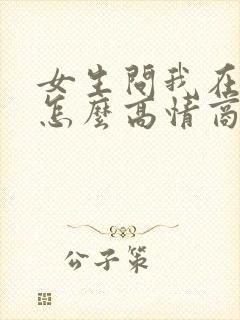 女生問我在
怎麼高情商
公子策